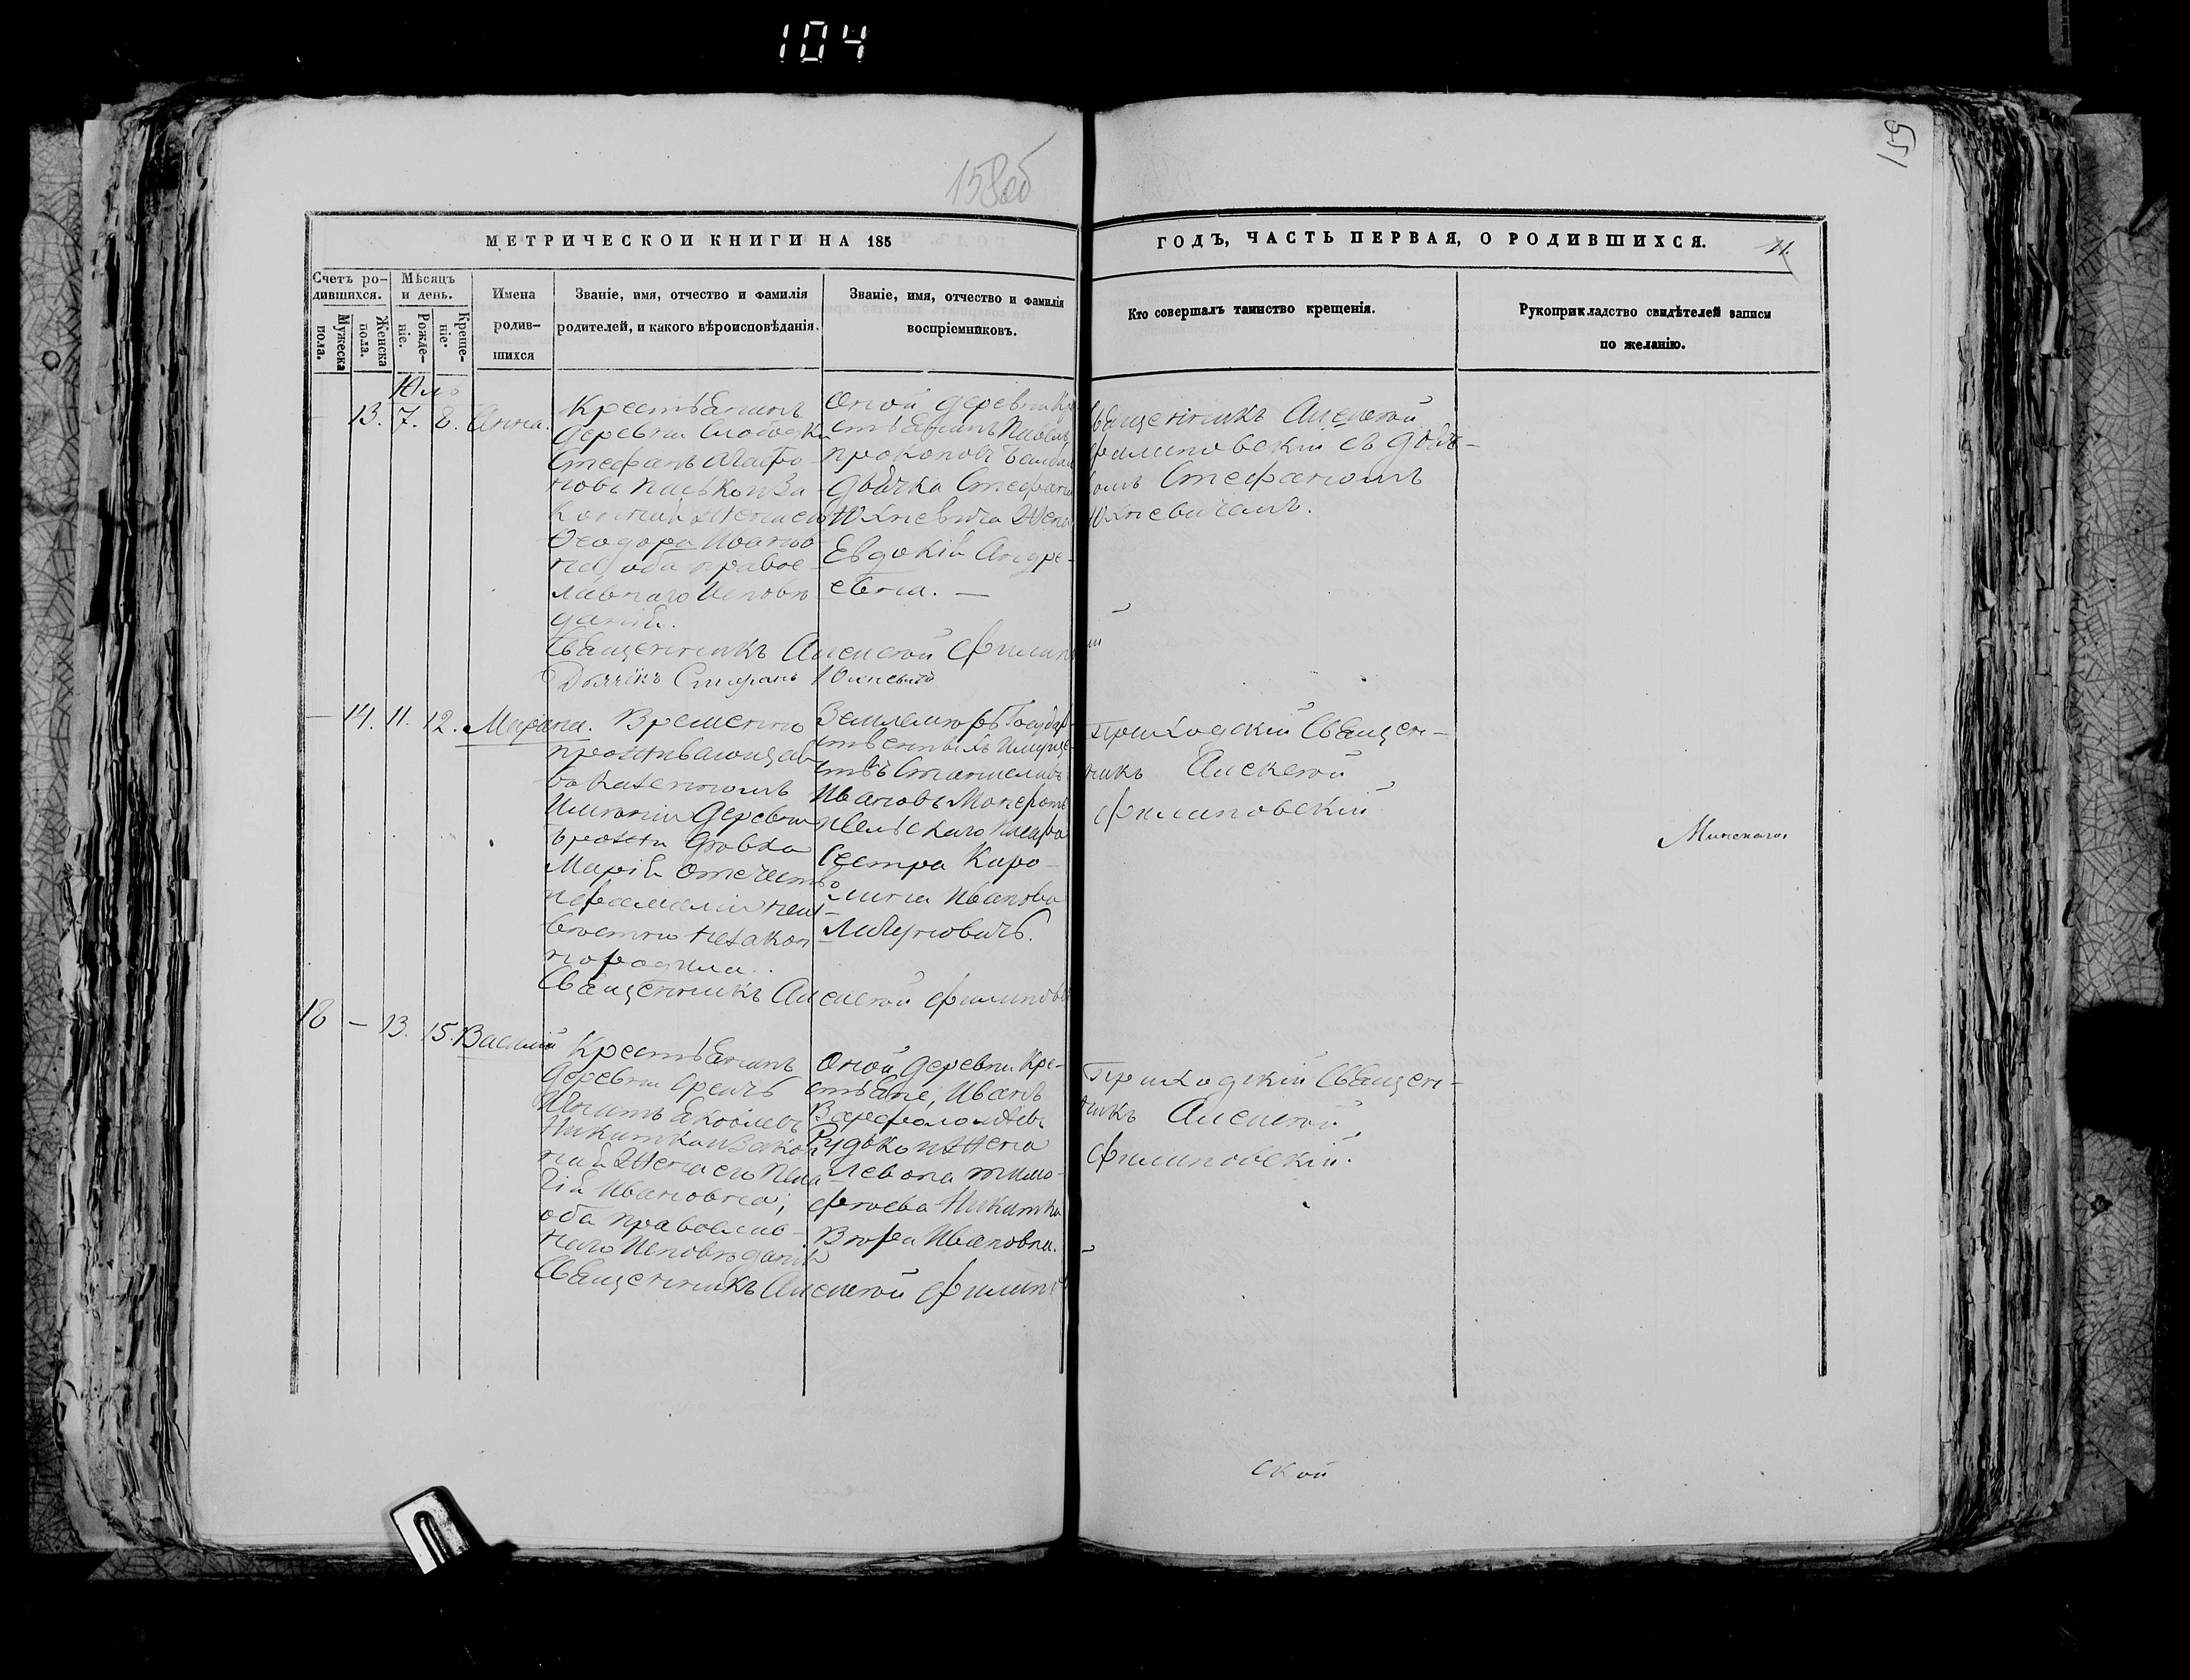 104
158об
159
МЕТРИЧЕСКОЙ КНИГИ НА 185
ГОДЪ, ЧАСТЬ ПЕРВАЯ, О РОДИВШИХСЯ.
11.
Счетъ родившихся.
Мужеска пола.
Женска пола.
Мѣсяцъ и день.
Рожденіе.
Крещеніе.
Имена
родив-
шихся
Званіе, имя, отчество и фамилія
родителей, и какого вѣроисповѣданія.
Званіе, имя, отчество и фамилія
воспріемниковъ.
Кто совершалъ таинство крещенія.
Рукоприкладство свидѣтелей записи
по желанію.
Юль
13. 7. 8. Анна.
Крестьянинъ
деревни Слободки
Стефанъ
законная жена его
Ѳеодора Иванов-
на, оба правос-
лавнаго исповѣ
данія.
Оной деревни Кре
стьянинъ Павелъ
Прокоповъ
Дьячка Стефана
Юхневича жена
Евдокія Андре-
евна. —
Священникъ Алексѣй
Филиповскій съ Дьяч-
комъ Стефаномъ
Юхневичемъ.
Священникъ Алексѣй Филиповскій
Дьячекъ Стефанъ Юхневичъ
— 14. 11. 12. Марина.
Временно
проживающая
въ казенномъ
имѣніи деревни
вдова
Марія отечество
и фамиліи неиз-
вѣстно незакон
но родила.
Землемѣръ Государ-
ственныхъ Имуще-
ствъ Станиславъ
Ивановъ
Сестра Каро-
лина Иванова
Приходскій Священ-
никъ Алексѣй
Филиповскій
Минскаго
Священникъ Алексѣй Филиповс
18 — 13. 15. Василій
Крестьянинъ
деревни
Игнатъ Яковлевъ
Никитка и закон
ная жена его Пела
гія Ивановна;
оба православ-
наго исповѣданія
Оной деревни Кре-
стьяне, Иванъ
Варфоломѣевъ
Рудько и жена
Левона Тимо-
фѣева Никитка
Вѣра Ивановна.
Приходскій Священ-
никъ Алексѣй
Филиповскій.
Священникъ Алексѣй Филипо
ской